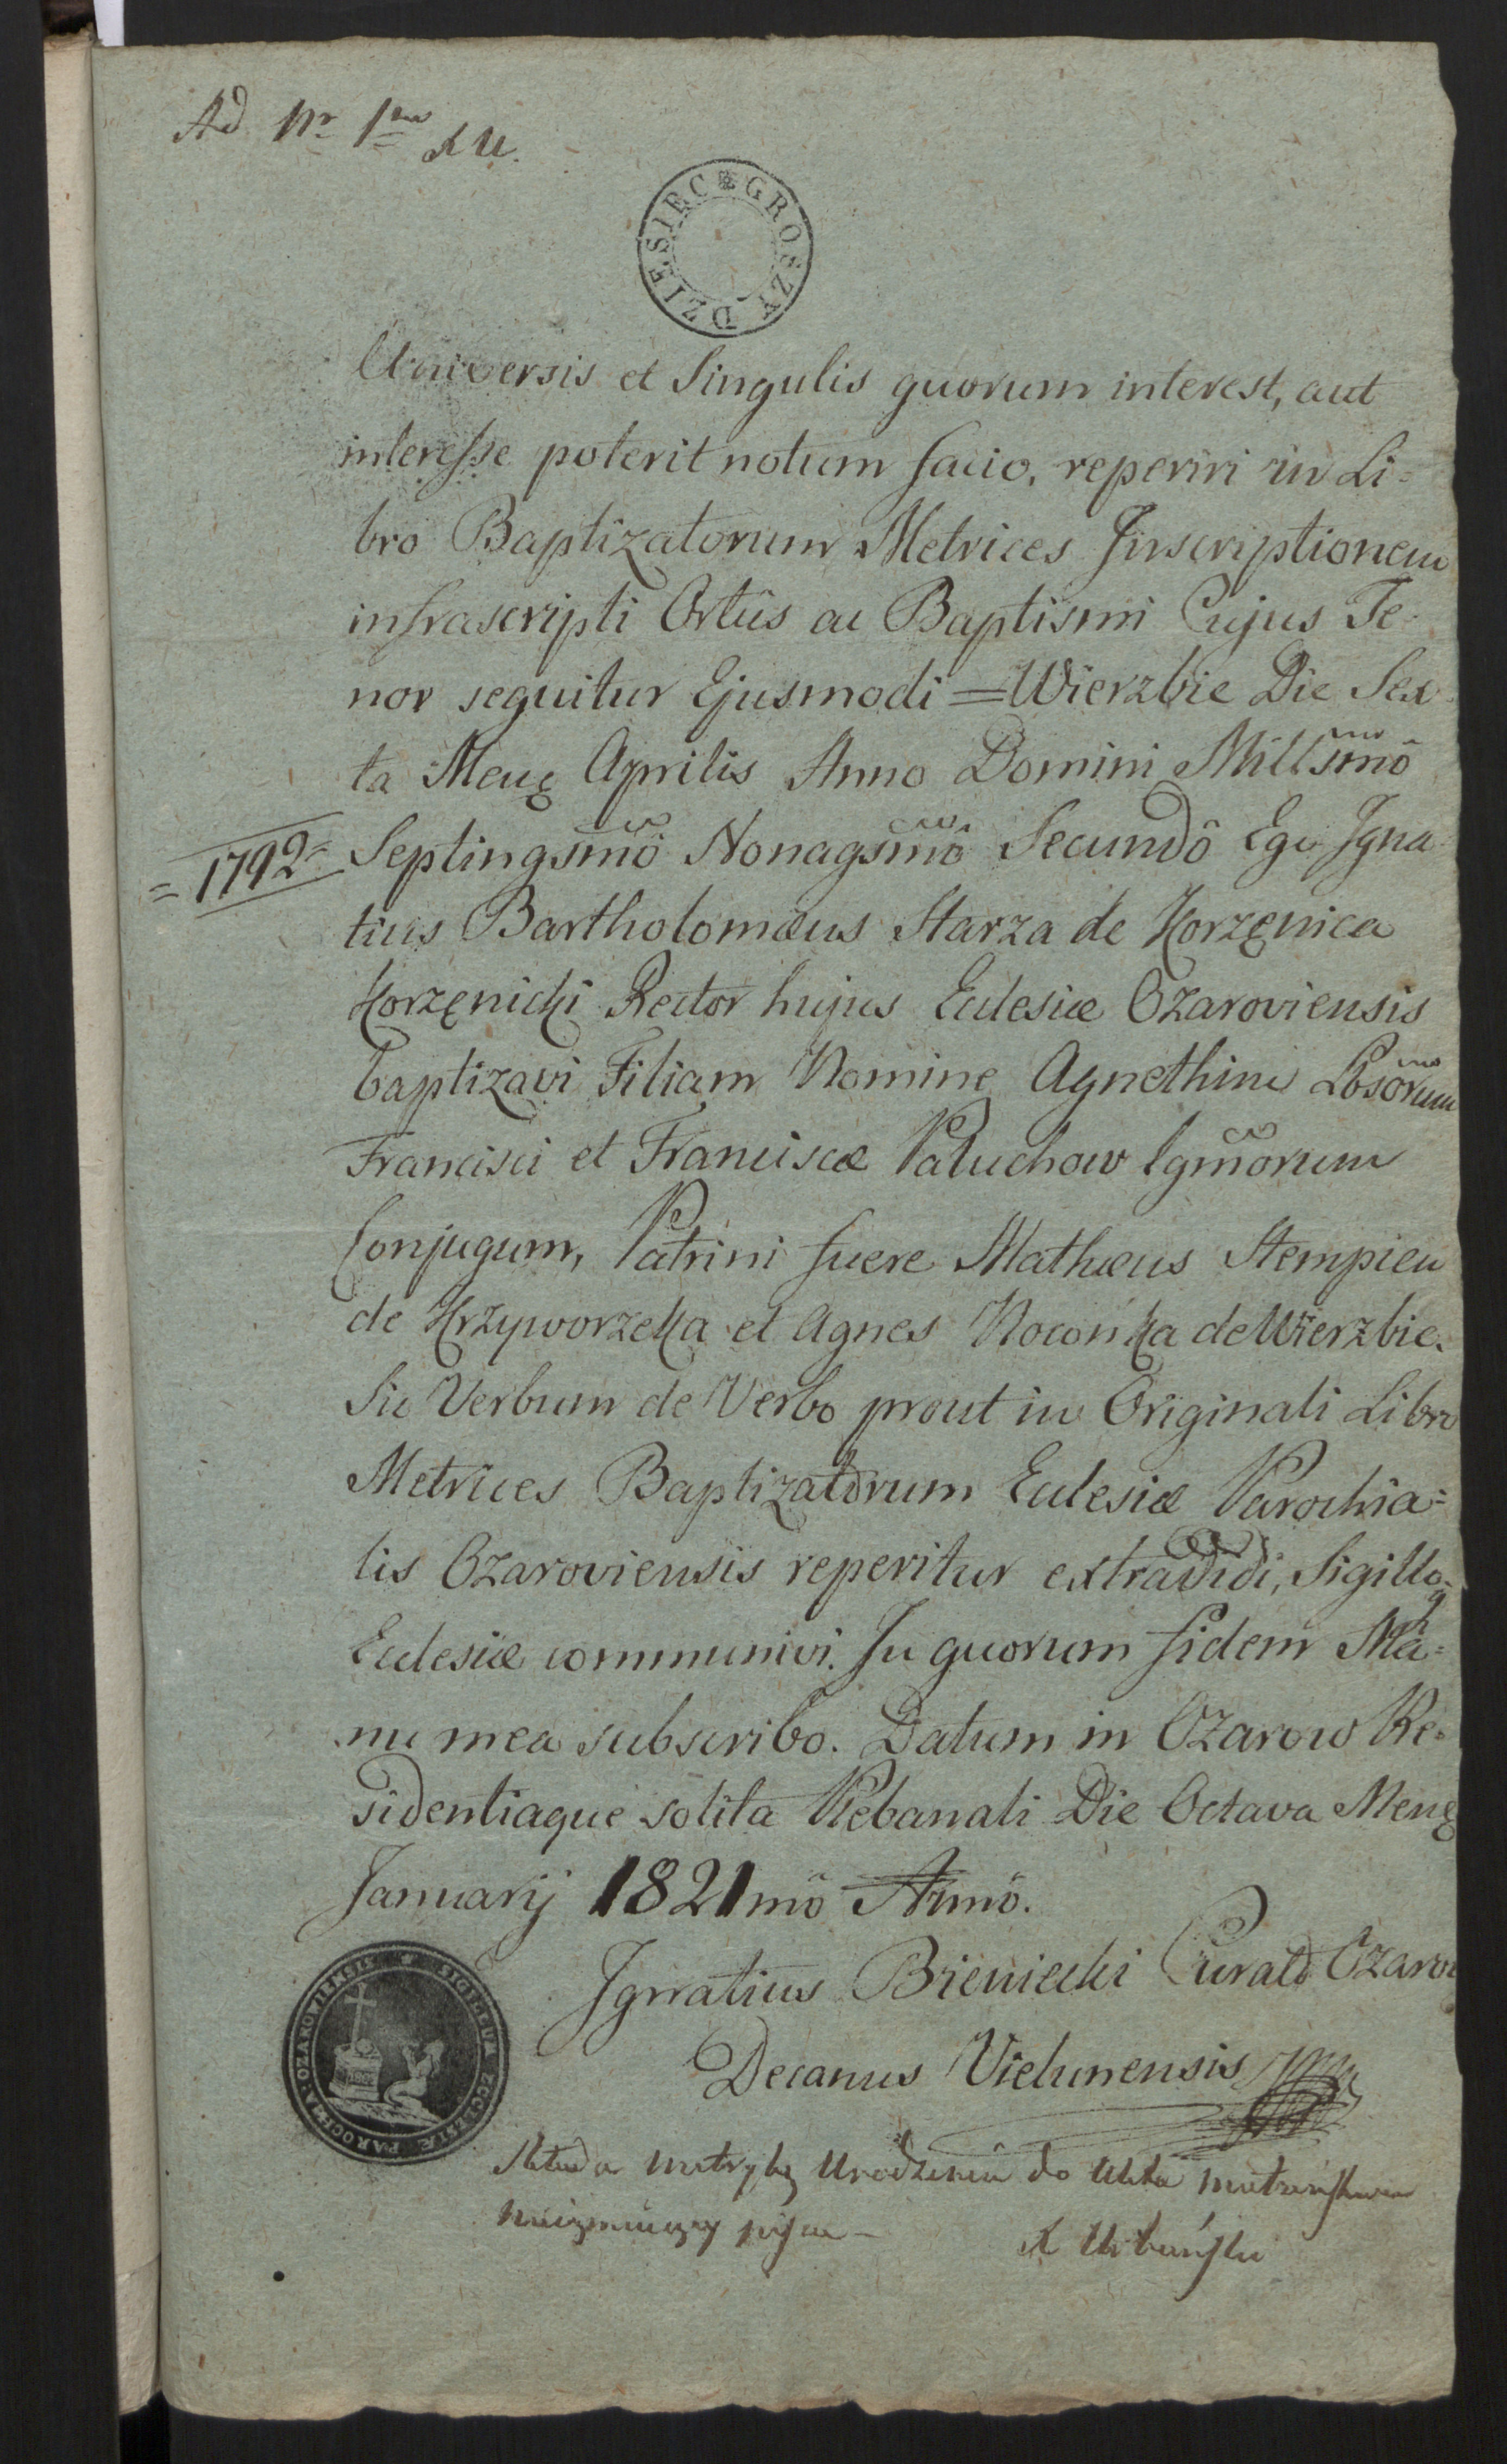 Ad Nr 1mu
DZIESIĘC GROSZY
Universis et Singulis quorum interest, aut
interesse poterit notum facio, reperiri in Li=
bro Baptizatorum Metrices Inscriptionem
infrascripti Ortûs ac Baptismi Cujus Te=
nor sequitur Ejusmodi = Wierzbie Die Sex
ta Mens Aprilis Anno Domini Millsmô
=1792= Septingsmô Nonagsmô Secundô Ego Igna
tius Bartholomæus Starza de Korzęnica
Korzęnicki Rector hujus Eclesiæ Ożaroviensis
baptizavi Filiam Nomine Agnethim Lbsorum
Francisci et Franciscæ Paluchow lgmorum
Conjugum, Patrini fuere Mathæus Stempien
de Krzyworzeka et Agnes Noconka de Wierzbie.
Sic Verbum de Verbo prout in Originali Libro
Metrices Baptizatorum Eclesiæ Parochia=
lis Ożaroviensis reperitur extradidi, Sigilloq
Eclesiæ communivi. In quorum fidem Ma=
nu mea subscribo. Datum in Ożarow Re=
sidentiaque solita Plebanali Die Octava Mens
Januarij 1821mô Annô.
Ignatius Bieniecki Curat Ożarov
Decanus Vielunensis
SIGILLUM ECCLESIÆ PAROCHIA: OZAROWIENSIS
Składa metrykę Urodzenia do Akta małżeństwa